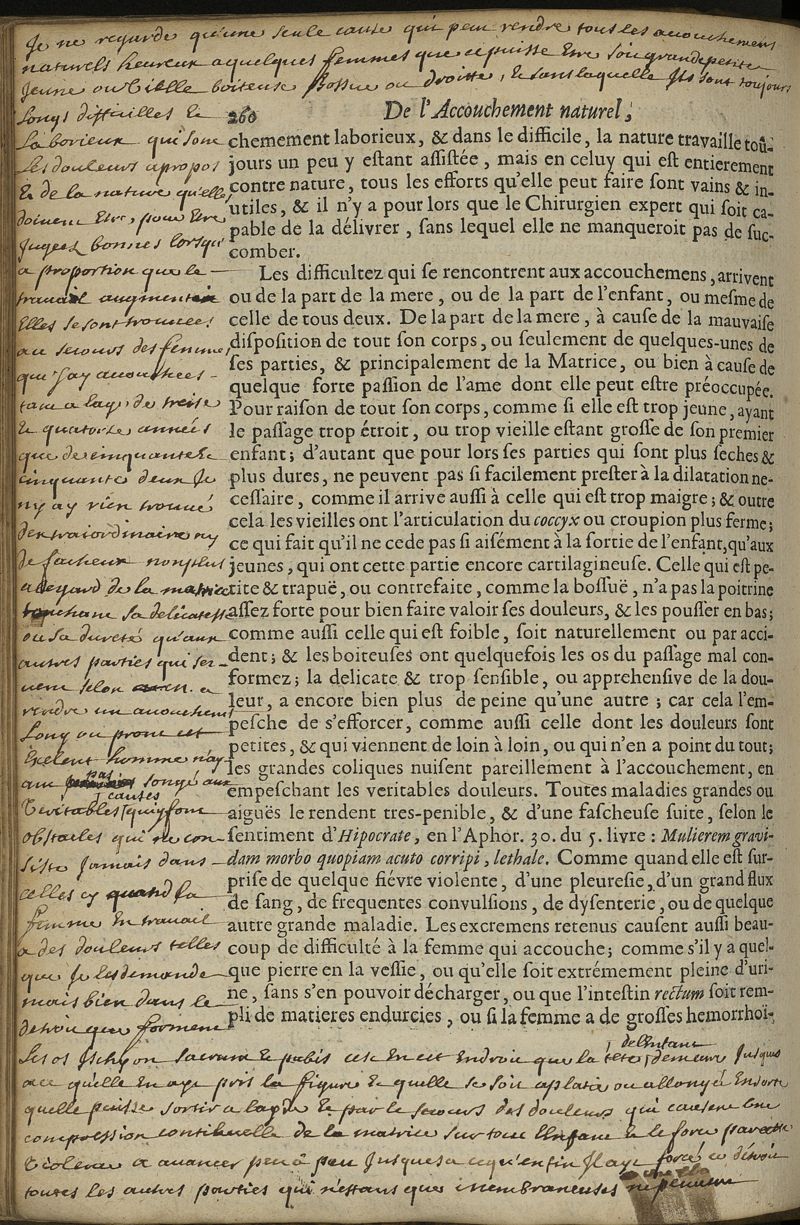 Je ne regarde qu'une seule cause qui peu rendre tous les acouchemens
naturels heureux a quelques femmes que ce puisse Etre soit grande petite
jeune ou Vieille boiteuse Bossue ou droitte, & sans laquelle Ils sont toujours
Longs difficilles &
Laborieux qui sont
Les douleurs apropos
& de la nature qu'elle
doivent Etre, pour Etre
Jugees bonnes lorsqu'
a proportion que le
travail augmentoit
Elles se sont trouvees
au secours des femmes
que J'ay acouchees
tant a lage de treise
& quatorze années
que de cinquante &
cinquante deux Je
ny ay rien trouvé
dextraiordinaire ny
de facheux nonplus
a legard de la matrice
touchant sa delicatesse
ou sa dureté qu'aux
autres parties qui ser-
vent selon a
rendre un acouchement
Long ou promt cet
Exelent homme n'ay-
ant pas songé aux
Veritables causes qui font
obstacles qui ne con-
siste Jamais dans
celles cy quand la
femme En travail
a des douleurs telles
que Je les demande
mais bien dans le
detroit que forment
260 De l'Accouchement naturel,
chemement laborieux, & dans le difficile, la nature travaille toû-
jours un peu y eſtant aſſiſtée, mais en celuy qui eſt entierement
contre nature, tous les efforts qu'elle peut faire ſont vains & in-
utiles, & il n'y a pour lors que le Chirurgien expert qui ſoit ca-
pable de la délivrer, ſans lequel elle ne manqueroit pas de ſuc-
comber.
Les difficultez qui ſe rencontrent aux accouchemens, arrivent
ou de la part de la mere, ou de la part de l'enfant, ou meſme de
celle de tous deux. De la part de la mere, à cauſe de la mauvaiſe
diſpoſition de tout ſon corps, ou ſeulement de quelques-unes de
ſes parties, & principalement de la Matrice, ou bien à cauſe de
quelque forte paſſion de l'ame dont elle peut eſtre préoccupée.
Pour raiſon de tout ſon corps, comme ſi elle eſt trop jeune, ayant
le paſſage trop étroit, ou trop vieille eſtant groſſe de ſon premier
enfant; d'autant que pour lors ſes parties qui ſont plus ſeches &
plus dures, ne peuvent pas ſi facilement preſter à la dilatation ne-
ceſſaire, comme il arrive auſſi à celle qui eſt trop maigre; & outre
cela les vieilles ont l'articulation du coccyx ou croupion plus ferme;
ce qui fait qu'il ne cede pas ſi aiſément à la ſortie de l'enfant, qu'aux
jeunes, qui ont cette partie encore cartilagineuſe. Celle qui eſt pe-
tite & trapuë, ou contrefaite, comme la boſſuë, n'a pas la poitrine
aſſez forte pour bien faire valoir ſes douleurs, & les pouſſer en bas;
comme auſſi celle qui eſt foible, ſoit naturellement ou par acci-
dent; & les boiteuſes ont quelquefois les os du paſſage mal con-
formez; la delicate & trop ſenſible, ou apprehenſive de la dou-
leur, a encore bien plus de peine qu'une autre; car cela l'em-
peſche de s'efforcer, comme auſſi celle dont les douleurs ſont
petites, & qui viennent de loin à loin, ou qui n'en a point du tout;
les grandes coliques nuiſent pareillement à l'accouchement, en
empeſchant les veritables douleurs. Toutes maladies grandes ou
aiguës le rendent tres-penible, & d'une faſcheuſe ſuite, ſelon le
ſentiment d'Hipocrate, en l'Aphor. 30. du 5. livre: Mulierem gravi-
dam morbo quopiam acuto corripi, lethale. Comme quand elle eſt ſur-
priſe de quelque fiévre violente, d'une pleureſie, d'un grand flux
de ſang, de frequentes convulſions, de dyſenterie, ou de quelque
autre grande maladie. Les excremens retenus cauſent auſſi beau-
coup de difficulté à la femme qui accouche; comme s'il y a quel-
que pierre en la veſſie, ou qu'elle ſoit extrémement pleine d'uri-
ne, ſans s'en pouvoir décharger, ou que l'inteſtin rectum ſoit rem-
pli de matieres endurcies, ou ſi la femme a de groſſes hemorrhoi-
Les os Ischyon Sacrum & pubis cest En cet Endroit que la tete de l'enfant demeure Jusques
ace qu'elle En aye pris la figure & quelle se soit aplatie ou allongé Ensorte
quelle puisse sortir a layde & par le secours des douleurs qui causent une
compression continuelle de la matrice sur tout lEnfant & le force par cette
Violence a avancer peu à peu Jusques a ce qu'enfin Il aye forcé ce détroit
toutes les autres parties qui n'estans que membraneuses ne peuvent